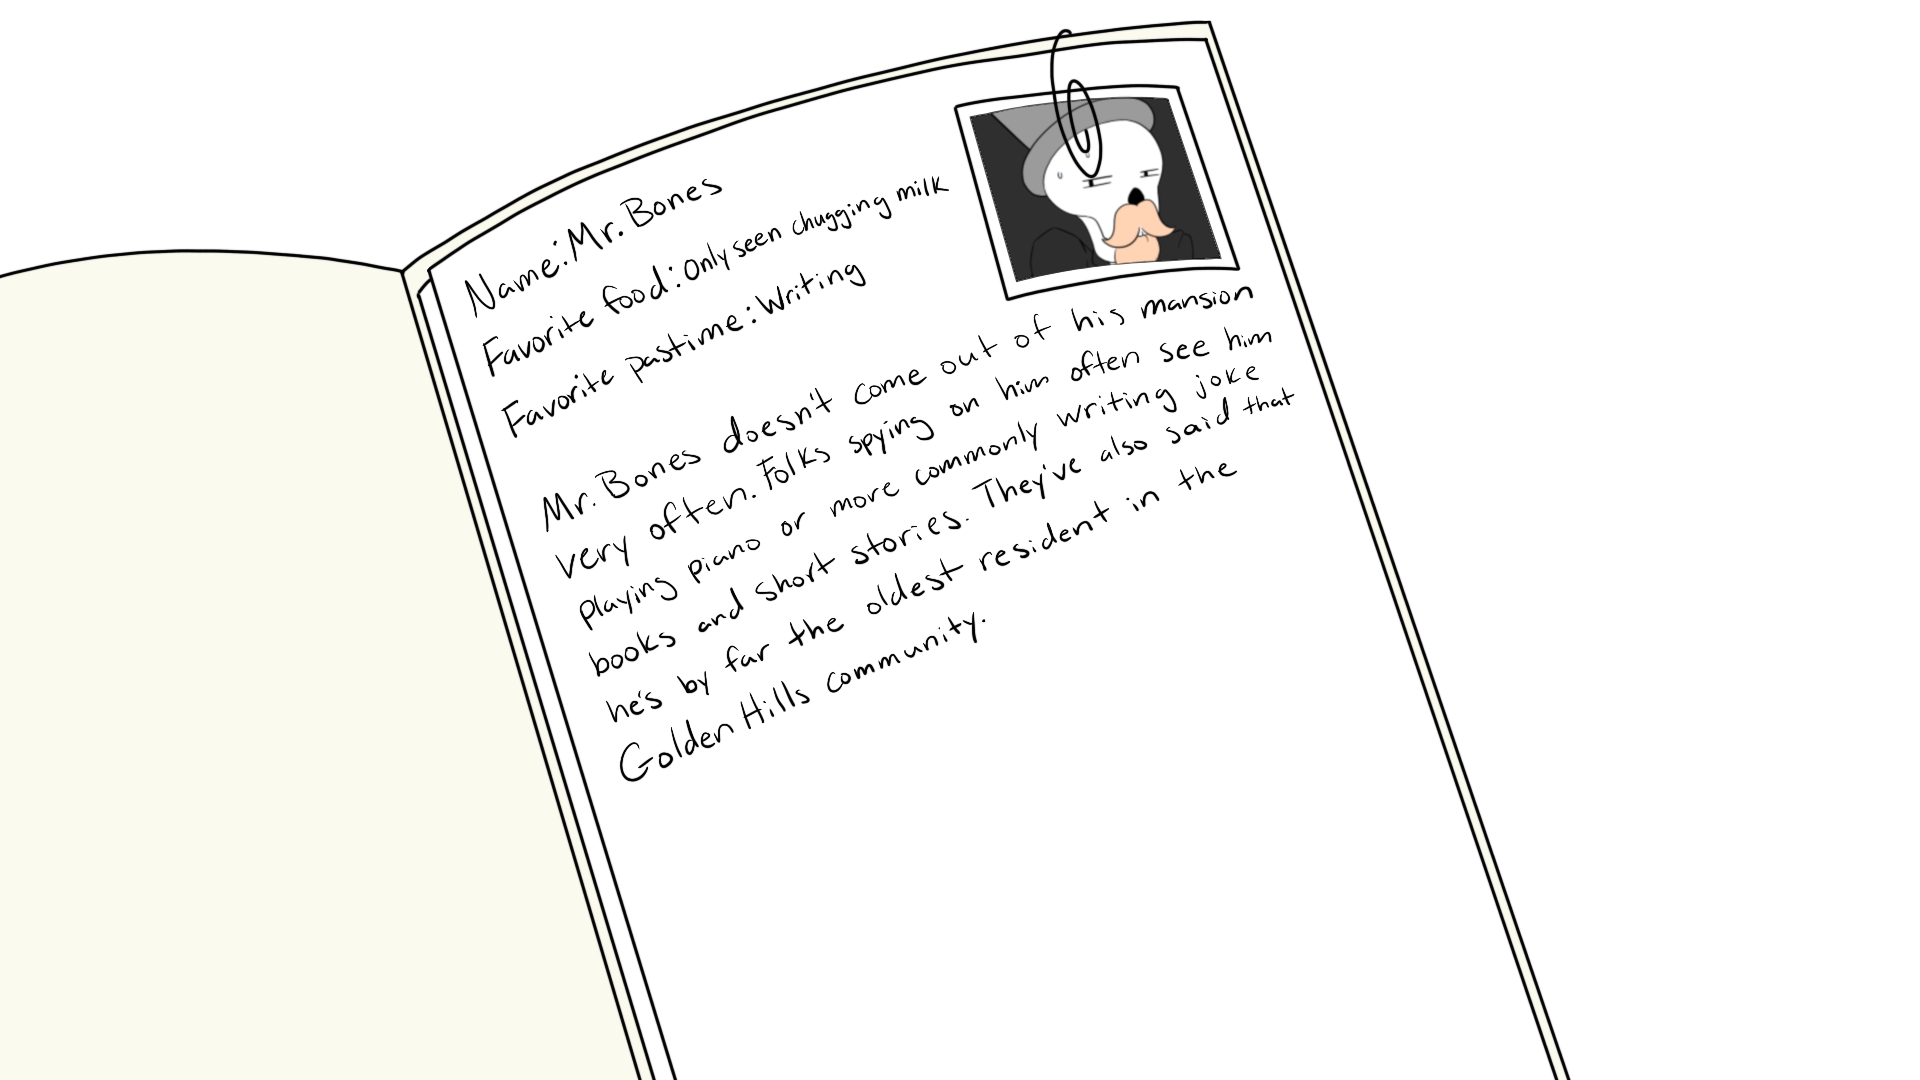 Name: Mr. Bones
Favorite food: Only seen chugging milk
Favorite pastime: Writing
Mr. Bones doesn't come out of his mansion
very often. Folks spying on him often see him
playing piano or more commonly writing joke
books and short stories. They've also said that
he's by far the oldest resident in the
Golden Hills community.